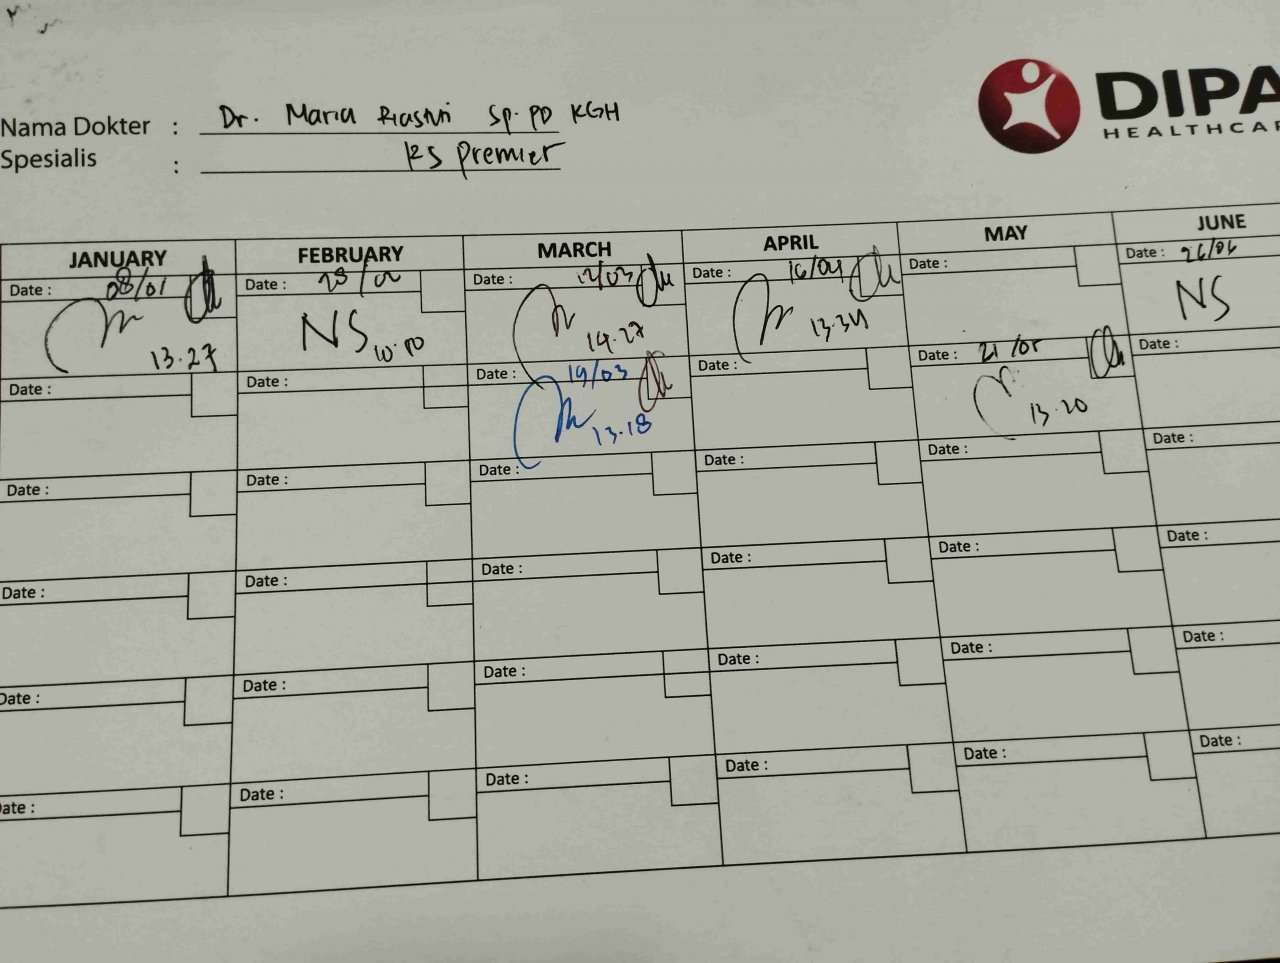 Nama Dokter : Dr. Maria Riastuti Sp. PD KGH
Spesialis : RS Premier
DIPA
HEALTHCAR
JANUARY FEBRUARY MARCH APRIL MAY JUNE
Date : 08/01 Date : 28/02 Date : 12/03 Date : 16/04 Date : Date : 26/06
13.27 NS 10.00 14.27 13.34 NS
Date : Date : Date : 19/03 Date : Date : 21/05 Date :
13.18 13.20
Date : Date : Date : Date : Date : Date :
Date : Date : Date : Date : Date : Date :
Date : Date : Date : Date : Date : Date :
Date : Date : Date : Date : Date : Date :